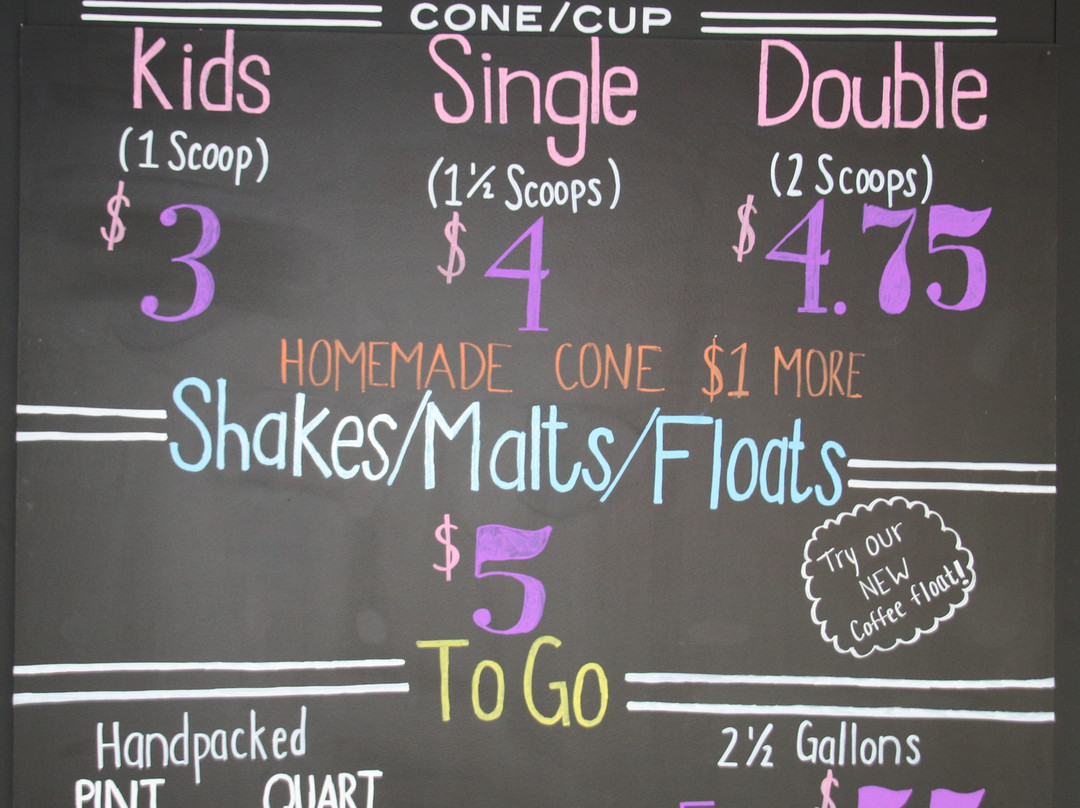 CONE/CUP
Kids Single Double
(1 Scoop) (1½ Scoops) (2 Scoops)
$3 $4 $4.75
HOMEMADE CONE $1 MORE
Shakes/Malts/Floats
$5
Try our
NEW
Coffee float!
To Go
Handpacked 2½ Gallons
PINT QUART
$